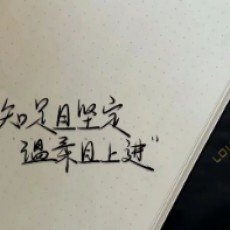 知足且坚定
温柔且上进"